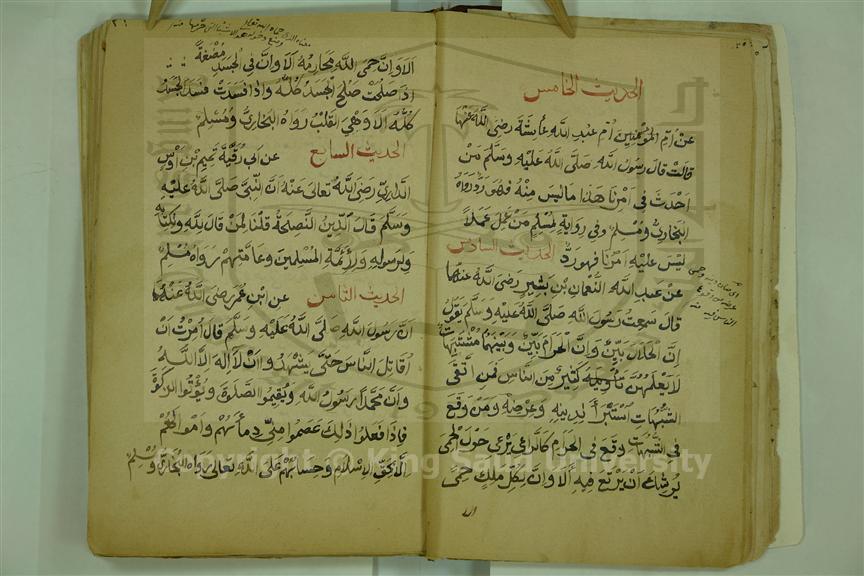 الحديث الخامس
عن ام المؤمنين ام عبد الله عائشة رضى الله عنها
قالت قال رسول الله صلى الله عليه وسلم من
احدث فى امرنا هذا ما ليس منه فهو رد رواه
البخارى ومسلم وفى رواية لمسلم من عمل عملا
ليس عليه امرنا فهو رد الحديث السادس
عن عبد الله النعمان بن بشير رضى الله عنهما
قال سمعت رسول الله صلى الله عليه وسلم يقول
ان الحلال بين وان الحرام بين وبينهما مشتبهات
لا يعلمهن كثير من الناس فمن اتقى
الشبهات استبرأ لدينه وعرضه ومن وقع
فى الشبهات وقع فى الحرام كالراعى يرعى حول الحمى
يوشك ان يرتع فيه الا وان لكل ملك حمى
الا
الا وان حمى الله محارمه الا وان فى الجسد مضغة
اذا صلحت صلح الجسد كله واذا فسدت فسد الجسد
كله الا وهى القلب رواه البخارى ومسلم
الحديث السابع عن ابى رقية تميم بن اوس
الدارى رضى الله تعالى عنه ان النبى صلى الله عليه
وسلم قال الدين النصيحة قلنا لمن قال لله ولكتابه
ولرسوله ولأئمة المسلمين وعامتهم رواه مسلم
الحديث الثامن عن ابن عمر رضى الله عنهما
ان رسول الله صلى الله عليه وسلم قال امرت ان
اقاتل الناس حتى يشهدوا ان لا اله الا الله
وان محمدا رسول الله ويقيموا الصلوة ويؤتوا الزكوة
فاذا فعلوا ذلك عصموا منى دماءهم واموالهم
الا بحق الاسلام وحسابهم على الله تعالى رواه البخارى ومسلم
Copyright © King Saud University